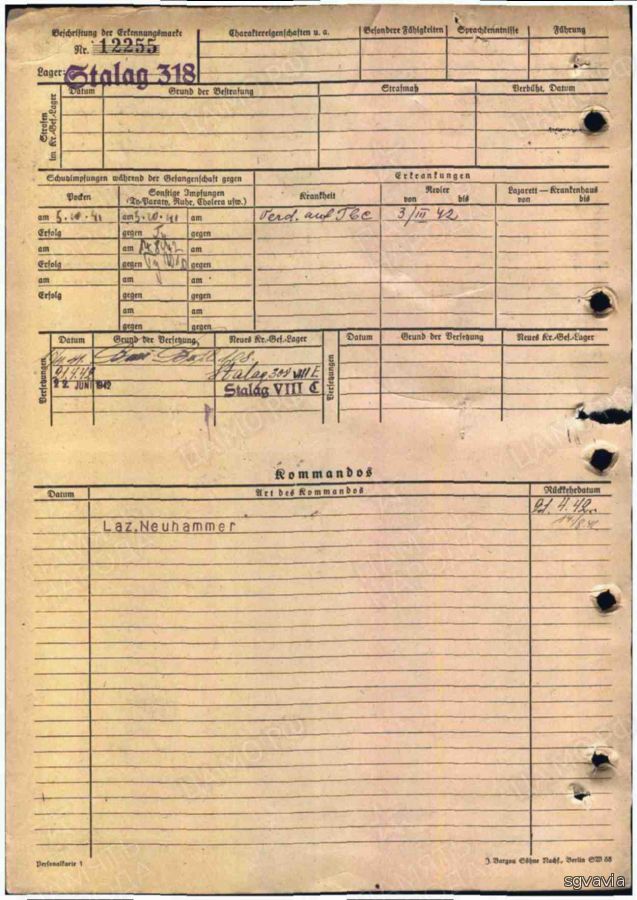 Beschriftung der Erkennungsmarke
Nr. 12255
Lager: Stalag 318
Charaktereigenschaften u. a.
Besondere Fähigkeiten
Sprachkenntnisse
Führung
Strafen im Kr.-Gef.-Lager
Datum
Grund der Bestrafung
Strafmaß
Verbüßt, Datum
Schutzimpfungen während der Gefangenschaft gegen
Erkrankungen
Pocken
Sonstige Impfungen
(Ty-Paraty, Ruhr, Cholera usw.)
Krankheit
Revier
von bis
Lazarett — Krankenhaus
von bis
am 5.10.41 am 5.10.41 am
Verd. auf Tbc 3/III 42
Erfolg gegen Ty gegen
am am am
Erfolg gegen gegen
am am am
Erfolg gegen gegen
am am
gegen gegen
Versetzungen
Datum
Grund der Versetzung
Neues Kr.-Gef.-Lager
Versetzungen
Datum
Grund der Versetzung
Neues Kr.-Gef.-Lager
21.4.42 Stalag 308 VIII E
22. JUNI 1942 Stalag VIII C
Kommandos
Datum
Art des Kommandos
Rückkehrdatum
21.4.42
Laz. Neuhammer
Personalkarte 1
J. Bargou Söhne Nachf., Berlin SW 68
ЦАМО РФ
ПАМЯТЬ НАРОДА
sgvavia